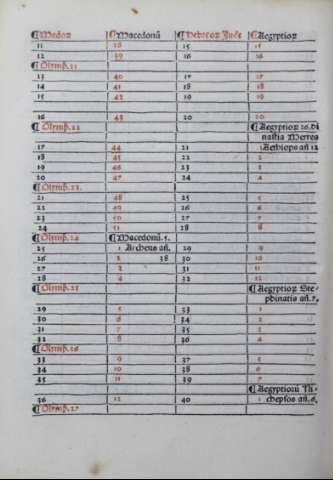 ¶Medoꝝ ¶Macedonū ¶Hebreoꝝ Jude ¶Aegyptioꝝ
11 38 15 15
12 39 16 16
¶Olymp. 21
13 40 17 17
14 41 18 18
15 42 19 19
16 43 20 20
¶Olymp. 22 ¶Aegyptioꝝ 26. Di
nastia Merres
17 44 21 Aethiops añ 12
18 45 22 2
19 46 23 3
20 47 24 4
¶Olymp. 23.
21 48 25 5
22 49 26 6
23 50 27 7
24 51 28 8
¶Olymp. 24 ¶Macedonū. 5.
25 1 Archeus añ. 29 9
26 2 38 30 10
27 3 31 11
28 4 32 12
¶Olymp. 25 ¶Aegyptioꝝ Ste-
phinatis añ. 7.
29 5 33 1
30 6 34 2
31 7 35 3
32 8 36 4
¶Olymp. 26
33 9 37 5
34 10 38 6
35 11 39 7
¶Aegyptiorū Ni-
36 12 40 1 chepsos añ. 6.
¶Olymp. 27